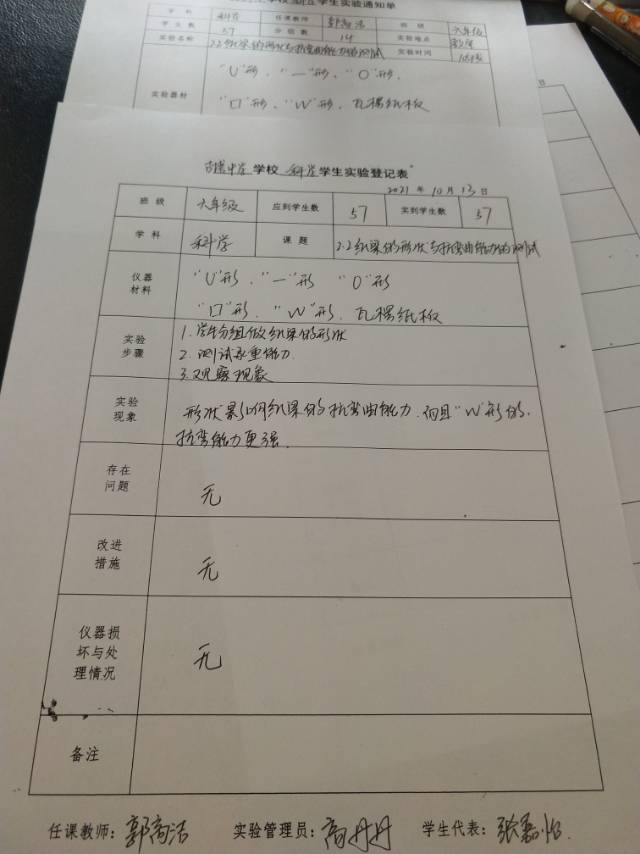 学校 学生实验通知单
学科 科学 任课教师 郭高洁 班级 六年级
学生数 57 分组数 14 实验地点
实验名称 2.2纸梁的形状与抗弯曲能力的测试 实验时间
实验器材 "U"形、"一"形、"O"形、
"口"形、"W"形、瓦楞纸板
中学 学校 科学 学生实验登记表
2021 年 10 月 13 日
班级 六年级 应到学生数 57 实到学生数 57
学科 科学 课题 2.2纸梁的形状与抗弯曲能力的测试
仪器材料 "U"形、"一"形 "O"形
"口"形、"W"形、瓦楞纸板
实验步骤 1.学生分组做纸梁的形状
2.测试承重能力
3.观察现象
实验现象 形状影响纸梁的抗弯曲能力.而且"W"形的,
抗弯能力更强.
存在问题 无
改进措施 无
仪器损坏与处理情况 无
备注
任课教师：郭高洁 实验管理员：高丹丹 学生代表：张嘉怡